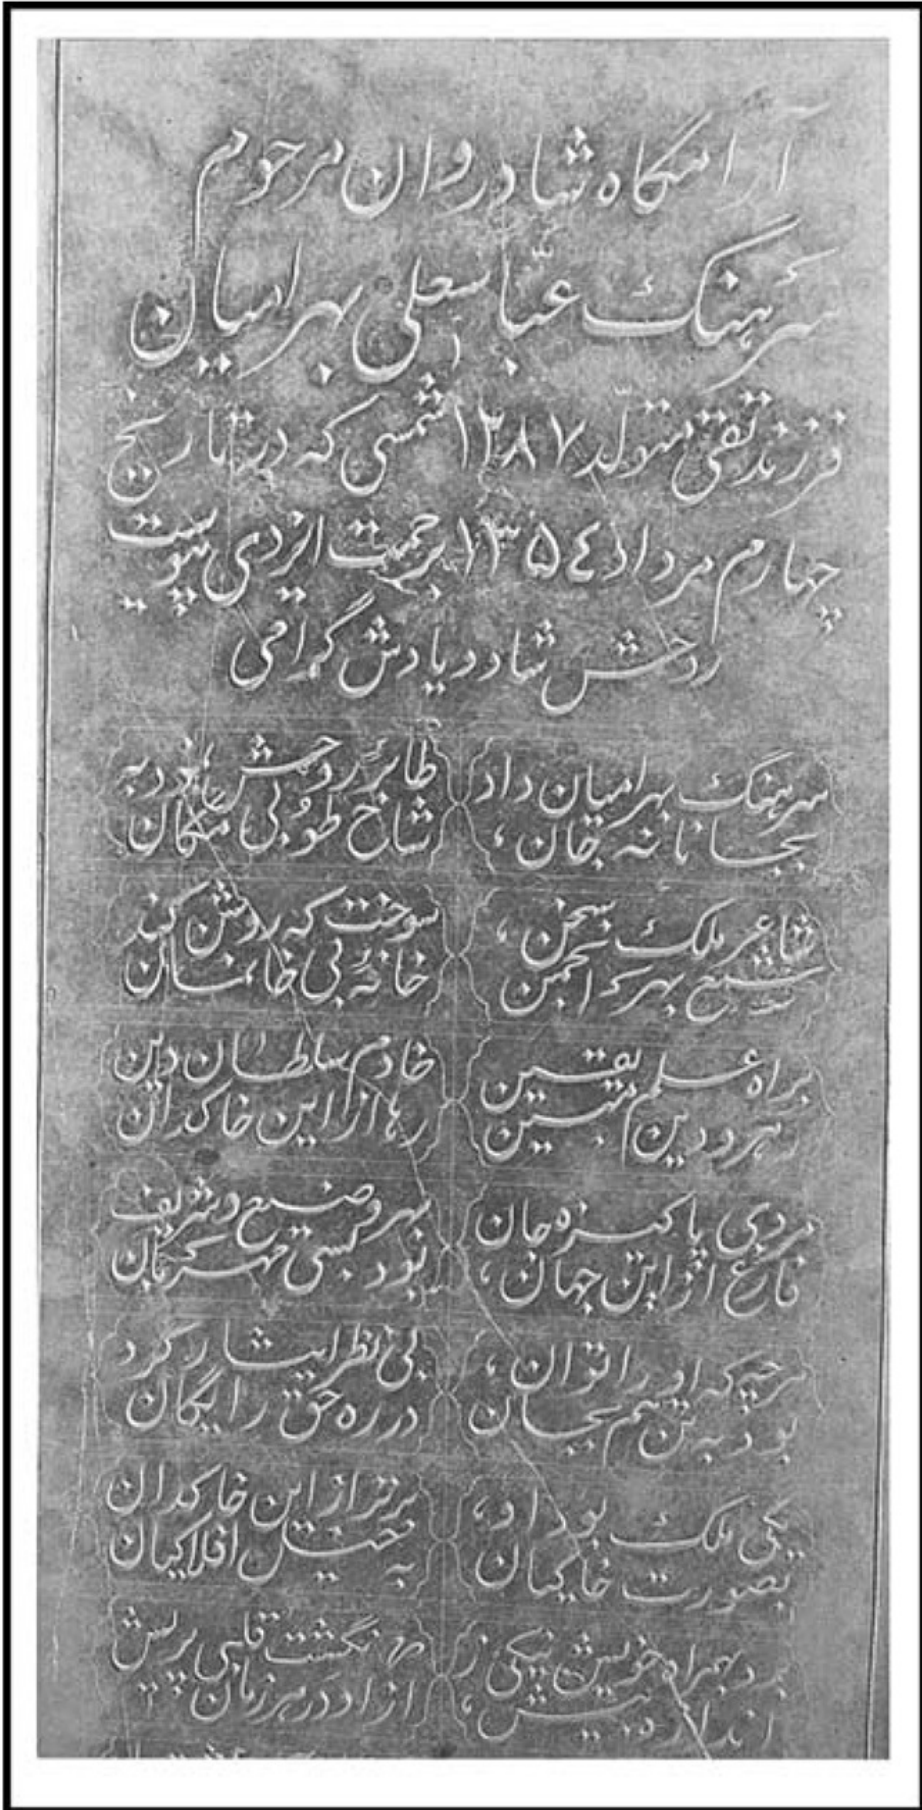 آرامگاه شادروان مرحوم
سرهنگ عباسعلی بهرامیان
فرزند تقی متولد ۱۳۸۷ شمسی که در تاریخ
چهارم مرداد ۱۳۵۴ برحمت ایزدی پیوست
روحش شاد و یادش گرامی
سرهنگ بهرامیان داد
بجانانه جان،
طایر روحش به
شاخ طوبی مکان
شاعر ملک سخن،
شمع بهر انجمن
سوخت که روشن کند
خانهٔ بی خانمان
براه علم یقین
رهرو دین مبین
خادم سلطان دین
رها از این خاکدان
مردی پاکیزه جان
فارغ از این جهان،
بهر وضیع و شریف
بود بسی مهربان
هرچه که او را توان،
بود به تن هم بجان
بی نظر ایثار کرد
در ره حق رایگان
یکی ملک بود او،
بصورت خاکیان
برتر از این خاکدان
به خیل افلاکیان
برد بهمراه خویش نیکی ز
اندازه بیش،
نگشت قلبی پریش
از او در هر زمان